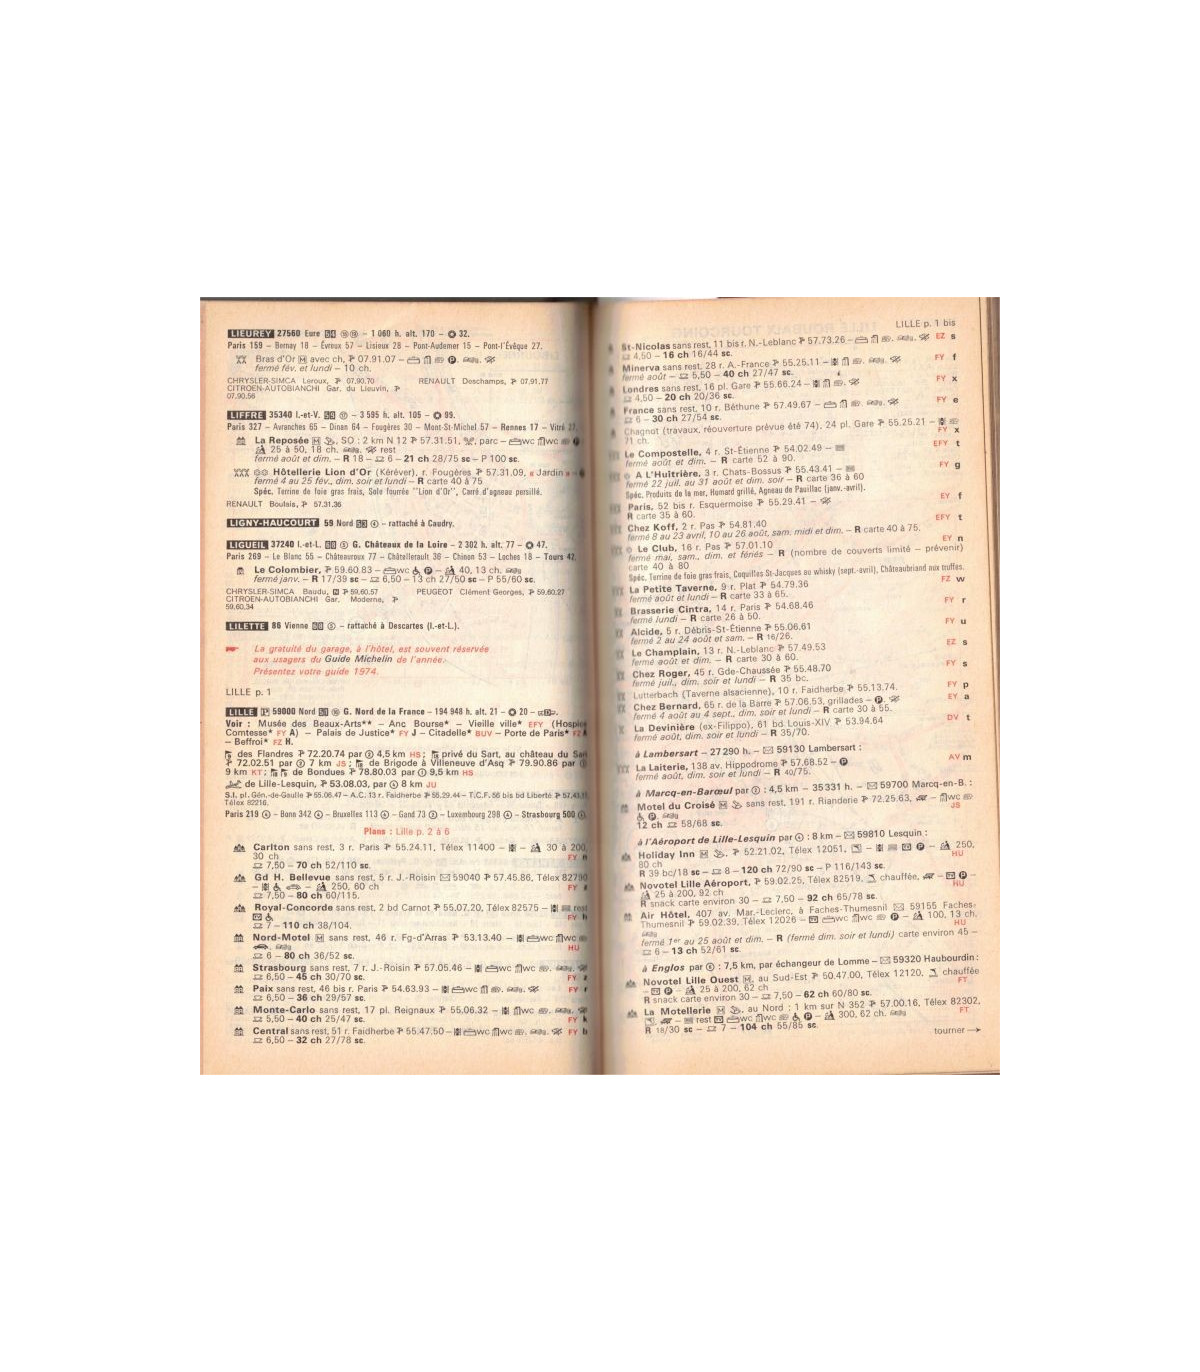 LIEUREY 27560 Eure – 1 060 h. alt. 170 – 32.
Paris 159 – Bernay 18 – Évreux 57 – Lisieux 28 – Pont-Audemer 15 – Pont-l'Évêque 27.
Bras d'Or M avec ch, 07.91.07 –
fermé fév. et lundi – 10 ch.
CHRYSLER-SIMCA Leroux, 07.90.70 RENAULT Deschamps, 07.91.77
CITROEN-AUTOBIANCHI Gar. du Lieuvin,
07.90.56
LIFFRÉ 35340 I.-et-V. – 3 595 h. alt. 105 – 99.
Paris 327 – Avranches 65 – Dinan 64 – Fougères 30 – Mont-St-Michel 57 – Rennes 17 – Vitré 27.
La Reposée M, SO : 2 km N 12 57.31.51, parc – wc wc
25 à 50, 18 ch. rest
fermé août et dim. – R 18 – 6 – 21 ch 28/75 sc – P 100 sc.
Hôtellerie Lion d'Or (Kéréver), r. Fougères 57.31.09, « Jardin » –
fermé 4 au 25 fév., dim. soir et lundi – R carte 40 à 75
Spéc. Terrine de foie gras frais, Sole fourrée "Lion d'Or", Carré d'agneau persillé.
RENAULT Boulais, 57.31.36
LIGNY-HAUCOURT 59 Nord 4 – rattaché à Caudry.
LIGUEIL 37240 I.-et-L. 5 G. Châteaux de la Loire – 2 302 h. alt. 77 – 47.
Paris 269 – Le Blanc 55 – Châteauroux 77 – Châtellerault 36 – Chinon 53 – Loches 18 – Tours 42.
Le Colombier, 59.60.83 – wc P – 40, 13 ch.
fermé janv. – R 17/39 sc – 6,50 – 13 ch 27/50 sc – P 55/60 sc.
CHRYSLER-SIMCA Baudu, 59.60.57 PEUGEOT Clément Georges, 59.60.27
CITROEN-AUTOBIANCHI Gar. Moderne,
59.60.34
LILETTE 86 Vienne 5 – rattaché à Descartes (I.-et-L.).
La gratuité du garage, à l'hôtel, est souvent réservée
aux usagers du Guide Michelin de l'année.
Présentez votre guide 1974.
LILLE p. 1
LILLE P 59000 Nord G. Nord de la France – 194 948 h. alt. 21 – 20 –
Voir : Musée des Beaux-Arts** – Anc Bourse* – Vieille ville* EFY (Hospice
Comtesse* FY A) – Palais de Justice* FY J – Citadelle* BUV – Porte de Paris* FZ
– Beffroi* FZ H.
des Flandres 72.20.74 par 2 4,5 km HS ; privé du Sart, au château du Sart
72.02.51 par 2 7 km JS ; de Brigode à Villeneuve d'Asq 79.90.86 par
9 km KT ; de Bondues 78.80.03 par 1 9,5 km HS
de Lille-Lesquin, 53.08.03, par 4 8 km JU
S.I. pl. Gén.-de-Gaulle 55.06.47 – A.C. 13 r. Faidherbe 55.29.44 – T.C.F. 56 bis bd Liberté 57.43.11
Télex 82216.
Paris 219 4 – Bonn 342 4 – Bruxelles 113 4 – Gand 73 2 – Luxembourg 298 4 – Strasbourg 500
Plans : Lille p. 2 à 6
Carlton sans rest, 3 r. Paris 55.24.11, Télex 11400 – – 30 à 200,
30 ch FY n
7,50 – 70 ch 52/110 sc.
Gd H. Bellevue sans rest, 5 r. J.-Roisin 59040 57.45.86, Télex 82790
– – 250, 60 ch FY
7,50 – 80 ch 60/115.
Royal-Concorde sans rest, 2 bd Carnot 55.07.20, Télex 82575 – rest
FY h
7 – 110 ch 38/104.
Nord-Motel M sans rest, 46 r. Fg-d'Arras 53.13.40 – wc wc
HU
6 – 80 ch 36/52 sc.
Strasbourg sans rest, 7 r. J.-Roisin 57.05.46 – wc wc
6,50 – 45 ch 30/70 sc. FY z
Paix sans rest, 46 bis r. Paris 54.63.93 – wc FY r
6,50 – 36 ch 29/57 sc.
Monte-Carlo sans rest, 17 pl. Reignaux 55.06.32 – wc
5,50 – 40 ch 25/47 sc. FY k
Central sans rest, 51 r. Faidherbe 55.47.50 – wc wc FY b
6,50 – 32 ch 27/78 sc.
LILLE p. 1 bis
St-Nicolas sans rest, 11 bis r. N.-Leblanc 57.73.26 – EZ s
4,50 – 16 ch 16/44 sc.
Minerva sans rest, 28 r. A.-France 55.25.11 – FY f
fermé août – 5,50 – 40 ch 27/47 sc.
Londres sans rest, 16 pl. Gare 55.66.24 – FY x
4,50 – 20 ch 20/36 sc.
France sans rest, 10 r. Béthune 57.49.67 – FY e
6 – 30 ch 27/54 sc.
Chagnot (travaux, réouverture prévue été 74), 24 pl. Gare 55.25.21 –
71 ch. FY x
Le Compostelle, 4 r. St-Étienne 54.02.49 – EFY t
fermé août et dim. – R carte 52 à 90.
A L'Huitrière, 3 r. Chats-Bossus 55.43.41 – FY g
fermé 22 juil. au 31 août et dim soir – R carte 36 à 60
Spéc. Produits de la mer, Homard grillé, Agneau de Pauillac (janv.-avril).
Paris, 52 bis r. Esquermoise 55.29.41 – EY f
R carte 35 à 60.
Chez Koff, 2 r. Pas 54.81.40 EFY t
fermé 8 au 23 avril, 10 au 26 août, sam. midi et dim. – R carte 40 à 75.
Le Club, 16 r. Pas 57.01.10 EY n
fermé mai, sam., dim. et fériés – R (nombre de couverts limité – prévenir)
carte 40 à 80
Spéc. Terrine de foie gras frais, Coquilles St-Jacques au whisky (sept.-avril), Châteaubriand aux truffes.
La Petite Taverne, 9 r. Plat 54.79.36 FZ w
fermé août et lundi – R carte 33 à 65.
Brasserie Cintra, 14 r. Paris 54.68.46 FY r
fermé lundi – R carte 26 à 50.
Alcide, 5 r. Débris-St-Étienne 55.06.61 FY u
fermé 2 au 24 août et sam. – R 16/26.
Le Champlain, 13 r. N.-Leblanc 57.49.53 EZ s
fermé août et dim. – R carte 30 à 60.
Chez Roger, 45 r. Gde-Chaussée 55.48.70 FY s
fermé juil., dim. soir et lundi – R 35 bc.
Lutterbach (Taverne alsacienne), 10 r. Faidherbe 55.13.74. FY p
Chez Bernard, 65 r. de la Barre 57.06.53, grillades – EY a
fermé 4 août au 4 sept., dim. soir et lundi – R carte 30 à 55.
La Devinière (ex-Filippo), 61 bd Louis-XIV 53.94.64 DV t
fermé août, dim. soir et lundi – R 35/70.
à Lambersart – 27 290 h. – 59130 Lambersart :
La Laiterie, 138 av. Hippodrome 57.68.52 – P AV m
fermé août, dim. soir et lundi – R 40/75.
à Marcq-en-Barœul par 2 : 4,5 km – 35 331 h. – 59700 Marcq-en-B. :
Motel du Croisé M, sans rest, 191 r. Rianderie 72.25.63, – wc
JS
12 ch 58/68 sc.
à l'Aéroport de Lille-Lesquin par 4 : 8 km – 59810 Lesquin :
Holiday Inn M, 52.21.02, Télex 12051, – – 250,
80 ch HU
R 39 bc/18 sc – 8 – 120 ch 72/90 sc – P 116/143 sc.
Novotel Lille Aéroport, 59.02.25, Télex 82519, chauffée, –
25 à 200, 92 ch HU
R snack carte environ 30 – 7,50 – 92 ch 65/78 sc.
Air Hôtel, 407 av. Mar.-Leclerc, à Faches-Thumesnil 59155 Faches-
Thumesnil 59.02.39, Télex 12026 – wc wc P – 100, 13 ch.
HU
fermé 1er au 25 août et dim. – R (fermé dim. soir et lundi) carte environ 45 –
6 – 13 ch 52/61 sc.
à Englos par 6 : 7,5 km, par échangeur de Lomme – 59320 Haubourdin :
Novotel Lille Ouest M, au Sud-Est 50.47.00, Télex 12120, chauffée
– P – 25 à 200, 62 ch FT
R snack carte environ 30 – 7,50 – 62 ch 60/80 sc.
La Motellerie M, au Nord : 1 km sur N 352 57.00.16, Télex 82302,
– rest wc wc P – 300, 62 ch. FT
R 18/30 sc – 7 – 104 ch 55/85 sc.
tourner →